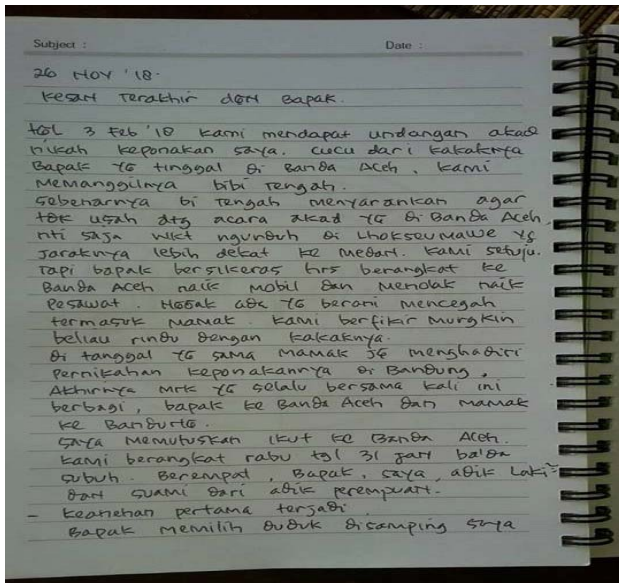 Subject :
Date :
26 NOV '18.
Kesan Terakhir dari Bapak.
tgl 3 Feb '18 kami mendapat undangan akad
nikah keponakan saya. Cucu dari kakaknya
Bapak yg tinggal di Banda Aceh, kami
memanggilnya bibi Tengah.
Sebenarnya bi Tengah menyarankan agar
tdk usah dtg acara akad yg di Banda Aceh,
nti saja wkt ngunduh di Lhokseumawe yg
jaraknya lebih dekat ke Medan. Kami setuju.
Tapi bapak bersikeras hrs berangkat ke
Banda Aceh naik mobil dan menolak naik
pesawat. Nggak ada yg berani mencegah
termasuk Mamak. Kami berfikir mungkin
beliau rindu dengan kakaknya.
Di tanggal yg sama mamak jg menghadiri
pernikahan keponakannya di Bandung,
Akhirnya mrk yg selalu bersama kali ini
berbagi, bapak ke Banda Aceh dan mamak
ke Bandung.
Saya memutuskan ikut ke Banda Aceh.
kami berangkat rabu tgl 31 jan ba'da
subuh. Berempat, Bapak, saya, adik laki²
dan suami dari adik perempuan.
- Keanehan pertama terjadi.
Bapak memilih duduk disamping saya